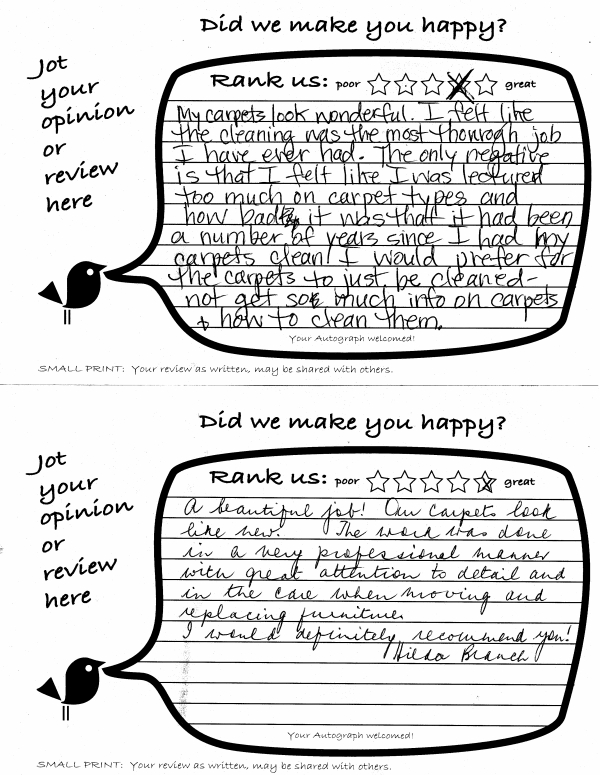 Did we make you happy?
Jot
your
opinion
or
review
here
Rank us: poor great
My carpets look wonderful. I felt like
the cleaning was the most thorough job
I have ever had. The only negative
is that I felt like I was lectured
too much on carpet types and
how bad it was that it had been
a number of years since I had my
carpets clean! I would prefer for
the carpets to just be cleaned-
not get so much info on carpets
+ how to clean them.
Your Autograph welcomed!
SMALL PRINT: Your review as written, may be shared with others.
Did we make you happy?
Jot
your
opinion
or
review
here
Rank us: poor great
A beautiful job! Our carpets look
like new. The work was done
in a very professional manner
with great attention to detail and
in the care when moving and
replacing furniture.
I would definitely recommend you!
Hilda Branch
Your Autograph welcomed!
SMALL PRINT: Your review as written, may be shared with others.